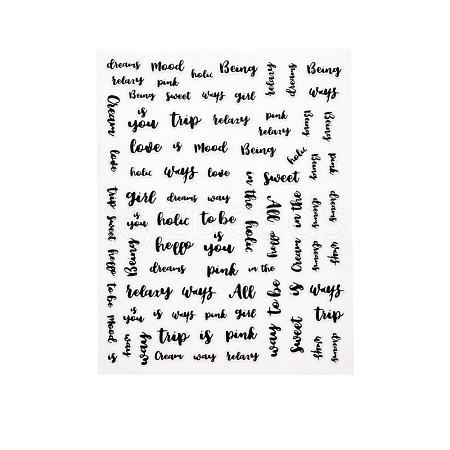 dreams Mood holic Being relaxy dreams Being
relaxy pink
Being sweet ways girl ways
Cream love
is you trip relaxy pink relaxy Being Being
love is Mood Being holic
holic ways love in the holic sweet Being pink
trip sweet hello to be Mood is
girl dreams way All hello Cream in the dreams dreams
is you holic to be
Being hello is you dreams ways
dreams pink in the
relaxy ways All way to be sweet is ways
is you is ways pink girl trip
way ways trip is pink
Cream way relaxy ways dreams